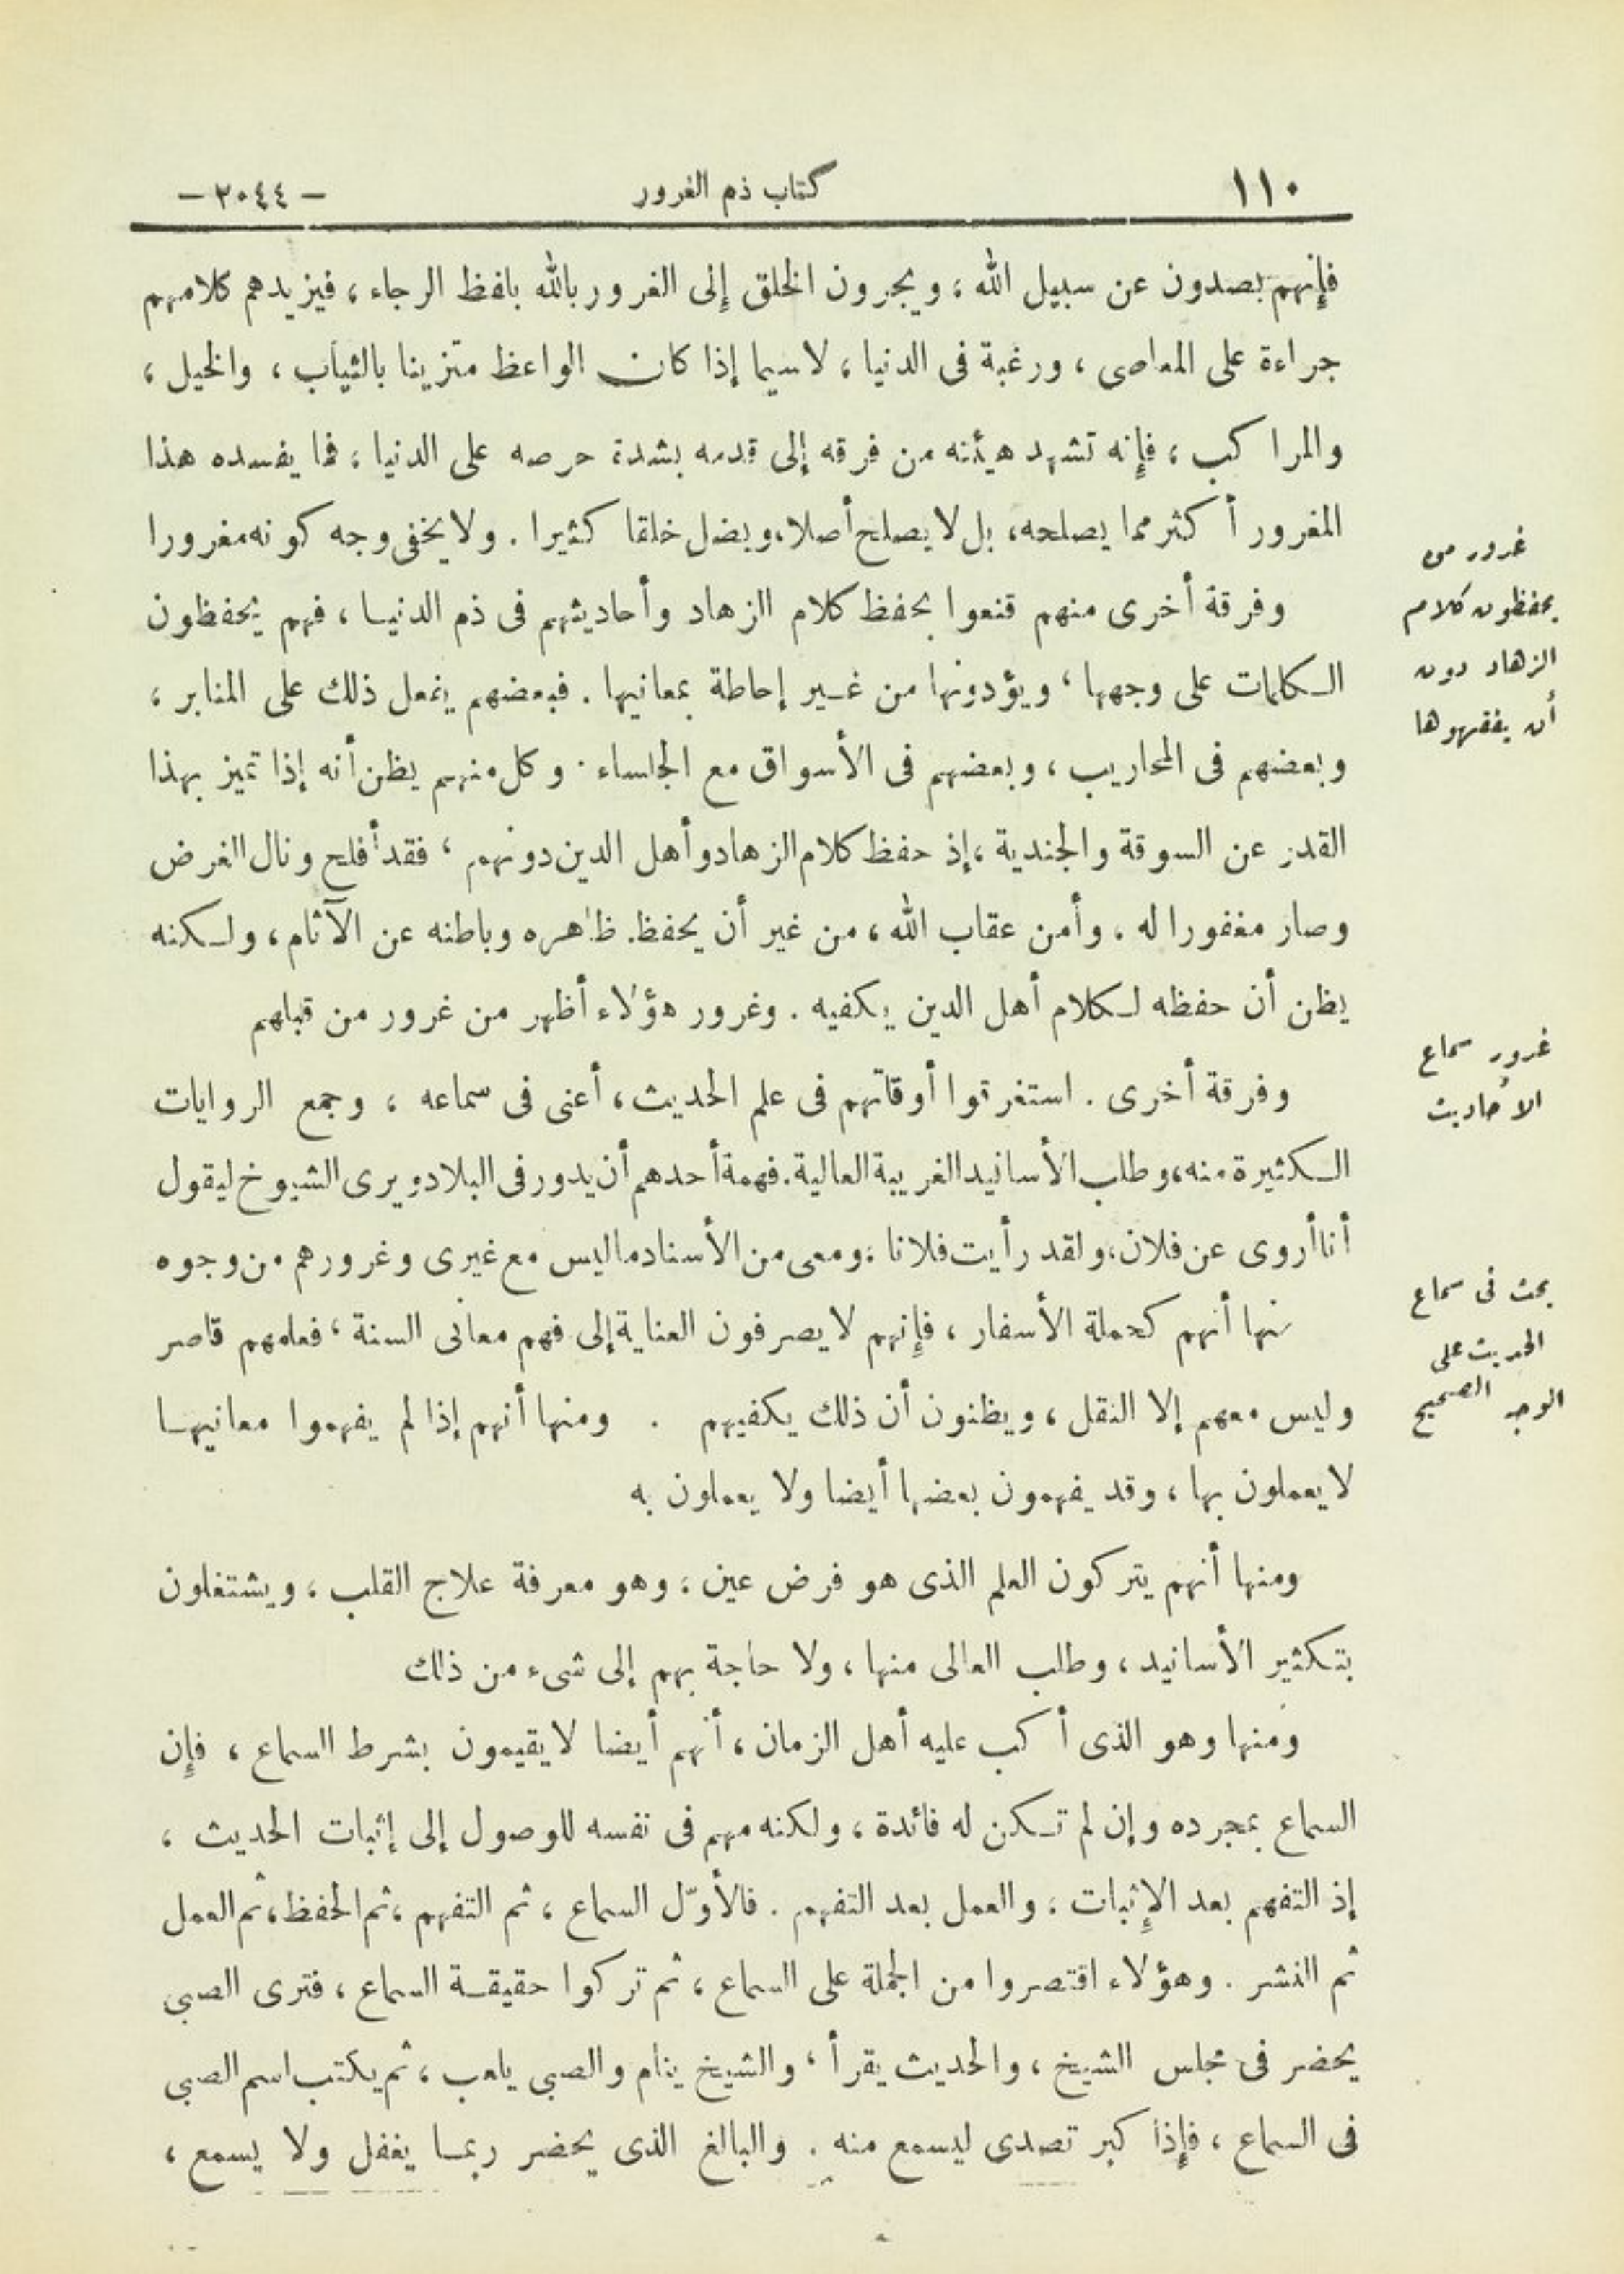 ١١٠
كتاب ذم الغرور
– ٢٠٤٤ –
فإنهم يصدون عن سبيل الله ، ويجرون الخلق إلى الغرور بالله بلفظ الرجاء ، فيزيدهم كلامهم
جراءة على المعاصى ، ورغبة فى الدنيا ، لاسيما إذا كان الواعظ متزينا بالثياب ، والخيل ،
والمراكب ، فإنه تشهد هيئته من فرقه إلى قدمه بشدة حرصه على الدنيا ، فما يفسده هذا
المغرور أكثر مما يصلحه ، بل لا يصلح أصلا ، ويضل خلقا كثيرا . ولا يخفى وجه كونه مغرورا
غرور من
يحفظون كلام
الزهاد دون
أن يفقهوها
وفرقة أخرى منهم قنعوا بحفظ كلام الزهاد وأحاديثهم فى ذم الدنيا ، فهم يحفظون
الكلمات على وجهها ، ويؤدونها من غير إحاطة بمعانيها . فبعضهم يفعل ذلك على المنابر ،
وبعضهم فى المحاريب ، وبعضهم فى الأسواق مع الجلساء . وكل منهم يظن أنه إذا تميز بهذا
القدر عن السوقة والجندية ، إذ حفظ كلام الزهاد وأهل الدين دونهم ، فقد أفلح ونال الغرض
وصار مغفورا له . وأمن عقاب الله ، من غير أن يحفظ ظاهره وباطنه عن الآثام ، ولكنه
يظن أن حفظه لكلام أهل الدين يكفيه . وغرور هؤلاء أظهر من غرور من قبلهم
غرور سماع
الأحاديث
وفرقة أخرى . استغرقوا أوقاتهم فى علم الحديث ، أعنى فى سماعه ، وجمع الروايات
الكثيرة منه ، وطلب الأسانيد الغريبة العالية . فهمة أحدهم أن يدور فى البلاد ويرى الشيوخ ليقول
أنا أروى عن فلان ، ولقد رأيت فلانا ، ومعى من الأسناد ما ليس مع غيرى وغرورهم من وجوه
بحث فى سماع
الحديث على
الوجه الصحيح
منها أنهم كحملة الأسفار ، فإنهم لا يصرفون العناية إلى فهم معانى السنة ، فعلمهم قاصر
وليس معهم إلا النقل ، ويظنون أن ذلك يكفيهم . ومنها أنهم إذا لم يفهموا معانيها
لا يعملون بها ، وقد يفهمون بعضها أيضا ولا يعملون به
ومنها أنهم يتركون العلم الذى هو فرض عين ، وهو معرفة علاج القلب ، ويشتغلون
بتكثير الأسانيد ، وطلب العالى منها ، ولا حاجة بهم إلى شىء من ذلك
ومنها وهو الذى أكب عليه أهل الزمان ، أنهم أيضا لا يقيمون بشرط السماع ، فإن
السماع بمجرده وإن لم تكن له فائدة ، ولكنه مهم فى نفسه للوصول إلى إثبات الحديث ،
إذ التفهم بعد الإثبات ، والعمل بعد التفهم . فالأوّل السماع ، ثم التفهم ، ثم الحفظ ، ثم العمل
ثم النشر . وهؤلاء اقتصروا من الجملة على السماع ، ثم تركوا حقيقة السماع ، فترى الصبى
يحضر فى مجلس الشيخ ، والحديث يقرأ ، والشيخ ينام والصبى يلعب ، ثم يكتب اسم الصبى
فى السماع ، فإذا كبر تصدى ليسمع منه . والبالغ الذى يحضر ربما يغفل ولا يسمع ،